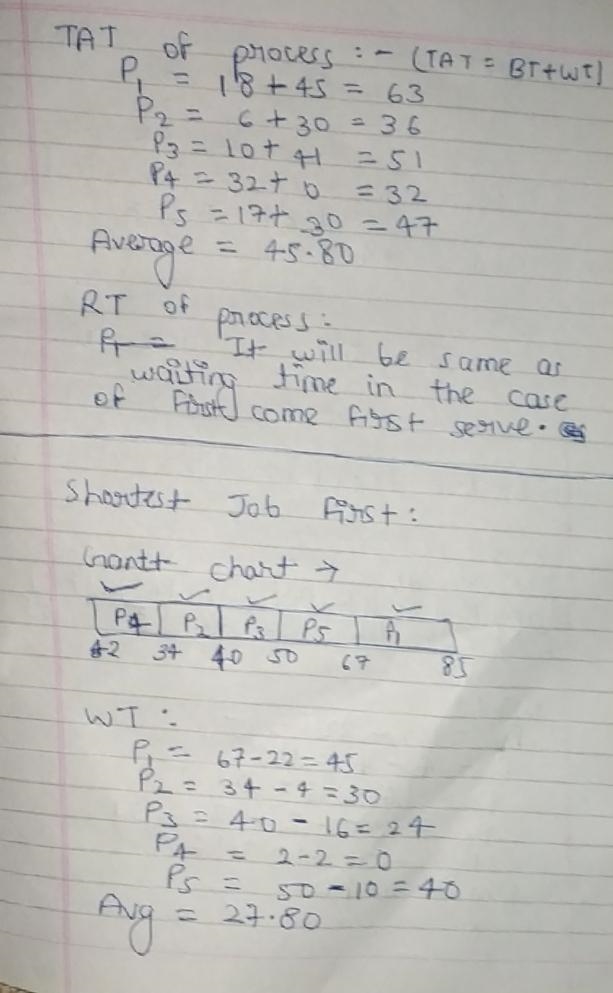 TAT of process :- (TAT = BT+WT)
P1 = 18 + 45 = 63
P2 = 6 + 30 = 36
P3 = 10 + 41 = 51
P4 = 32 + 0 = 32
P5 = 17 + 30 = 47
Average = 45.80
RT of process:
It will be same as
waiting time in the case
of First come first serve.
Shortest Job First:
Gantt chart →
P4 P2 P3 P5 P1
2 34 40 50 67 85
WT :
P1 = 67-22 = 45
P2 = 34 - 4 = 30
P3 = 40 - 16 = 24
P4 = 2-2 = 0
P5 = 50 - 10 = 40
Avg = 27.80